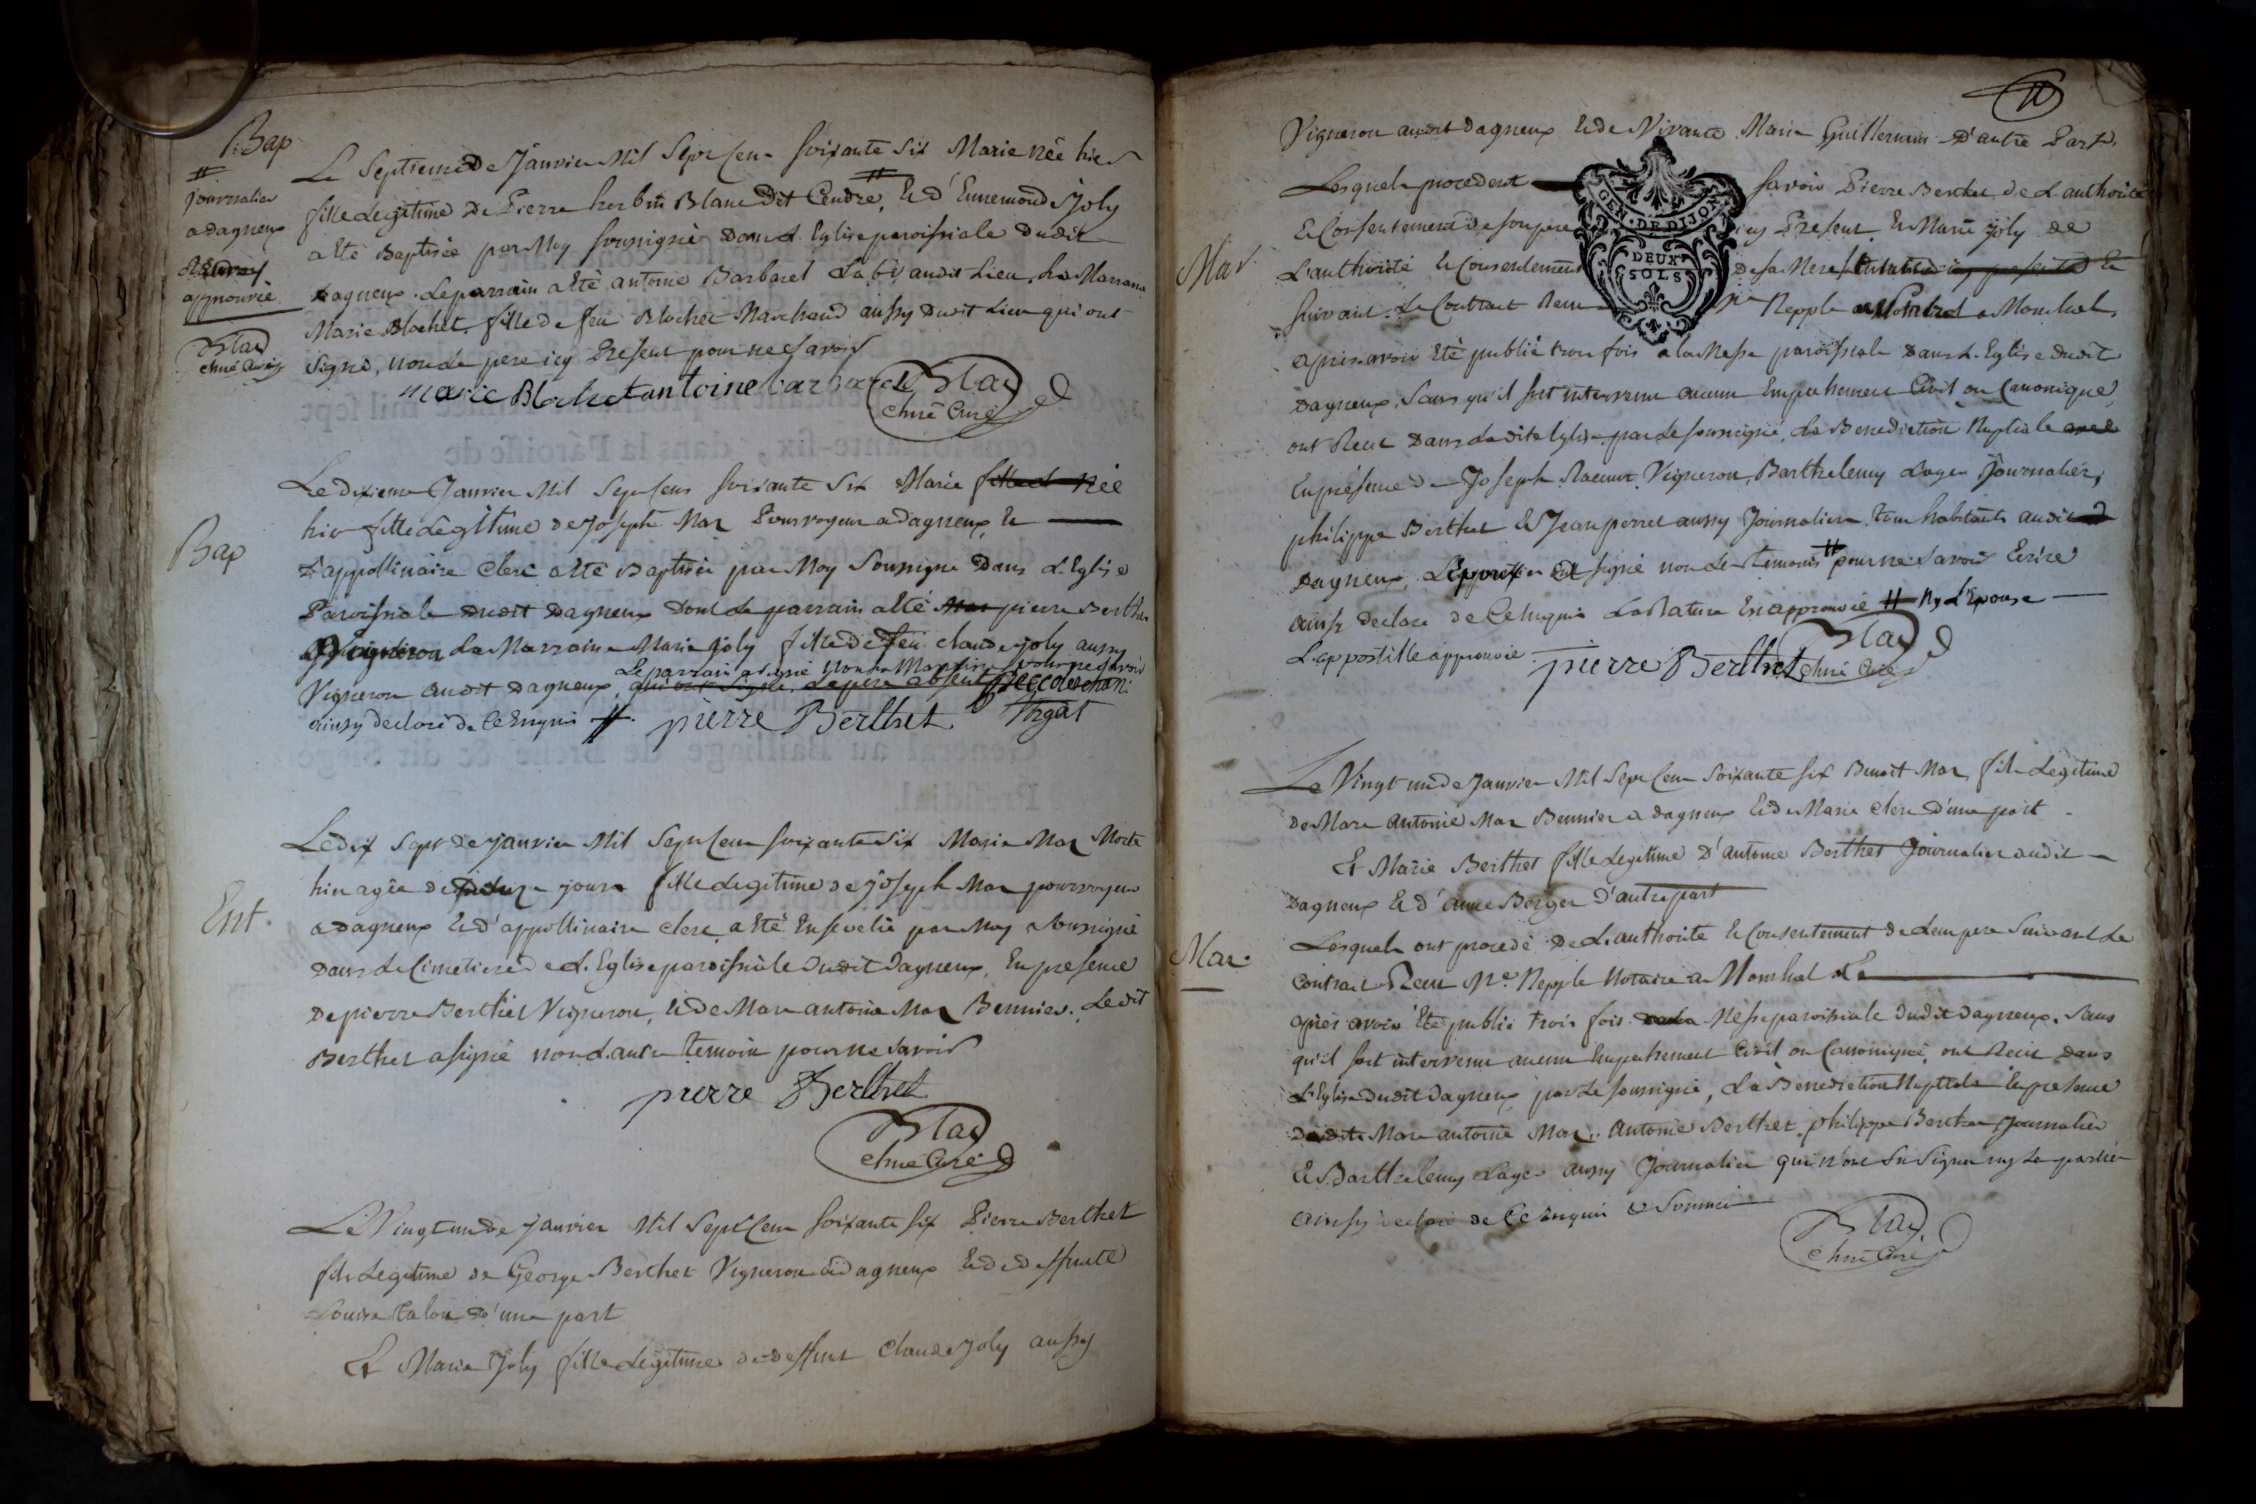 Bap
journalier
a dagneux
approuvée
Blad
chne Curé
Le Septieme De Janvier Mil Sept Cent Soixante Six Marie née hier
fille Legitime De Pierre Blanc Dit Cendre, Et d'Ennemonde Joly
a Eté Baptisée par Moy soussigné Dans L'Eglise paroissiale Dudit
Dagneux. Le parrain a Eté antoine Barbaret audit Lieu, La Marraine
Marie Blochet, fille De feu Blochet Marchand aussy Dudit Lieu qui ont
signé, non Le pere icy Present pour ne Savoir
marie Blochet antoine barbaret Blad
chne Curé
Bap
Le dixieme Janvier Mil Sept Cens Soixante Six Marie née
hier fille Legitime de Joseph Mar Pourvoyeur a Dagneux, Et
D'appollinaire Clerc a Eté Baptisée par Moy Soussigné Dans L'Eglise
Paroissiale Dudit Dagneux Dont Le parrain a Eté pierre Berthet
Vigneron La Marraine Marie Joly fille De feu claude Joly aussy
Le parrain a signé non La Marraine pour ne Savoir
Vigneron audit Dagneux, qui ont signé, Le pere absent
ainsy Declaré De Ce Enquis #. pierre Berthet
Ent.
Le dix Sept de Janvier Mil Sept Cent Soixante Six Marie Mar Morte
hier agée de jours fille Legitime de Joseph Mar pourvoyeur
a Dagneux Et d'appollinaire Clerc a Eté Ensevelie par Moy Soussigné
Dans Le Cimetiere de L'Eglise paroissiale Dudit Dagneux, En presence
De pierre Berthet Vigneron, Et de Marc antoine Mar Bennier. Le dit
Berthet a signé non L'autre temoin pour ne Savoir
pierre Berthet
Blad
chne Curé
Le Vingt un de Janvier Mil Sept Cent Soixante Six Pierre Berthet
fils Legitime de George Berthet Vigneron a Dagneux Et de deffunte
Louise Talon D'une part
Et Marie Joly fille Legitime de deffunt Claude Joly aussy
11
Vigneron audit Dagneux Et de Vivante Marie Guillermin D'autre Part,
Lesquels procedent savoir Pierre Berthet de L'authorité
Et Consentement de son pere icy Present Et Marie Joly de
GEN. DE DIJON
DEUX
SOLS
Mar
L'authorité Et Consentement De sa Mere Et
suivant Le Contract Recu Nepple a Monluel
apres avoir Eté publié trois fois a la Messe paroissiale Dans L'Eglise dudit
Dagneux, sans qu'il soit intervenu aucun Empechement Civil ou Canonique,
ont Recu Dans Ladite Eglise par Le soussigné, La Benediction Nuptiale
En présence de Joseph Vigneron, Barthelemy Layer Journalier,
philippe Berthet Et Jean perret aussy Journalier tous habitants audit
Dagneux, L'Epoux a signé non Les temoins # pour ne Savoir Ecrire
ainsy Declaré de Ce Enquis La Rature En approuvée # Ny L'Epouse
L'appostille approuvée pierre Berthet Blad
chne Curé
Le Vingt un de Janvier Mil Sept Cent Soixante Six Benoit Mar fils Legitime
De Marc antoine Mar Bennier a Dagneux Et de Marie Clerc D'une part
Et Marie Berthet fille Legitime D'antoine Berthet Journalier audit
Dagneux Et d'anne Berger D'autre part
Mar.
Lesquels ont procedé de L'authorité Et Consentement de Leur pere Suivant Le
Contract Recu Me. Nepple Notaire a Monluel
apres avoir Eté publié trois fois Messe paroissiale dudit Dagneux, Sans
qu'il soit intervenu aucun Empechement Civil ou Canonique, ont Recu Dans
L'Eglise Dudit Dagneux par Le soussigné, La Benediction Nuptiale En presence
Dudit Marc antoine Mar, Antoine Berthet, philippe Berthet Journalier
Et Barthelemy Layer aussy Journalier qui n'ont Su Signer ny Les parties
ainsy declaré de Ce Enquis Et Sommé
Blad.
chne Curé